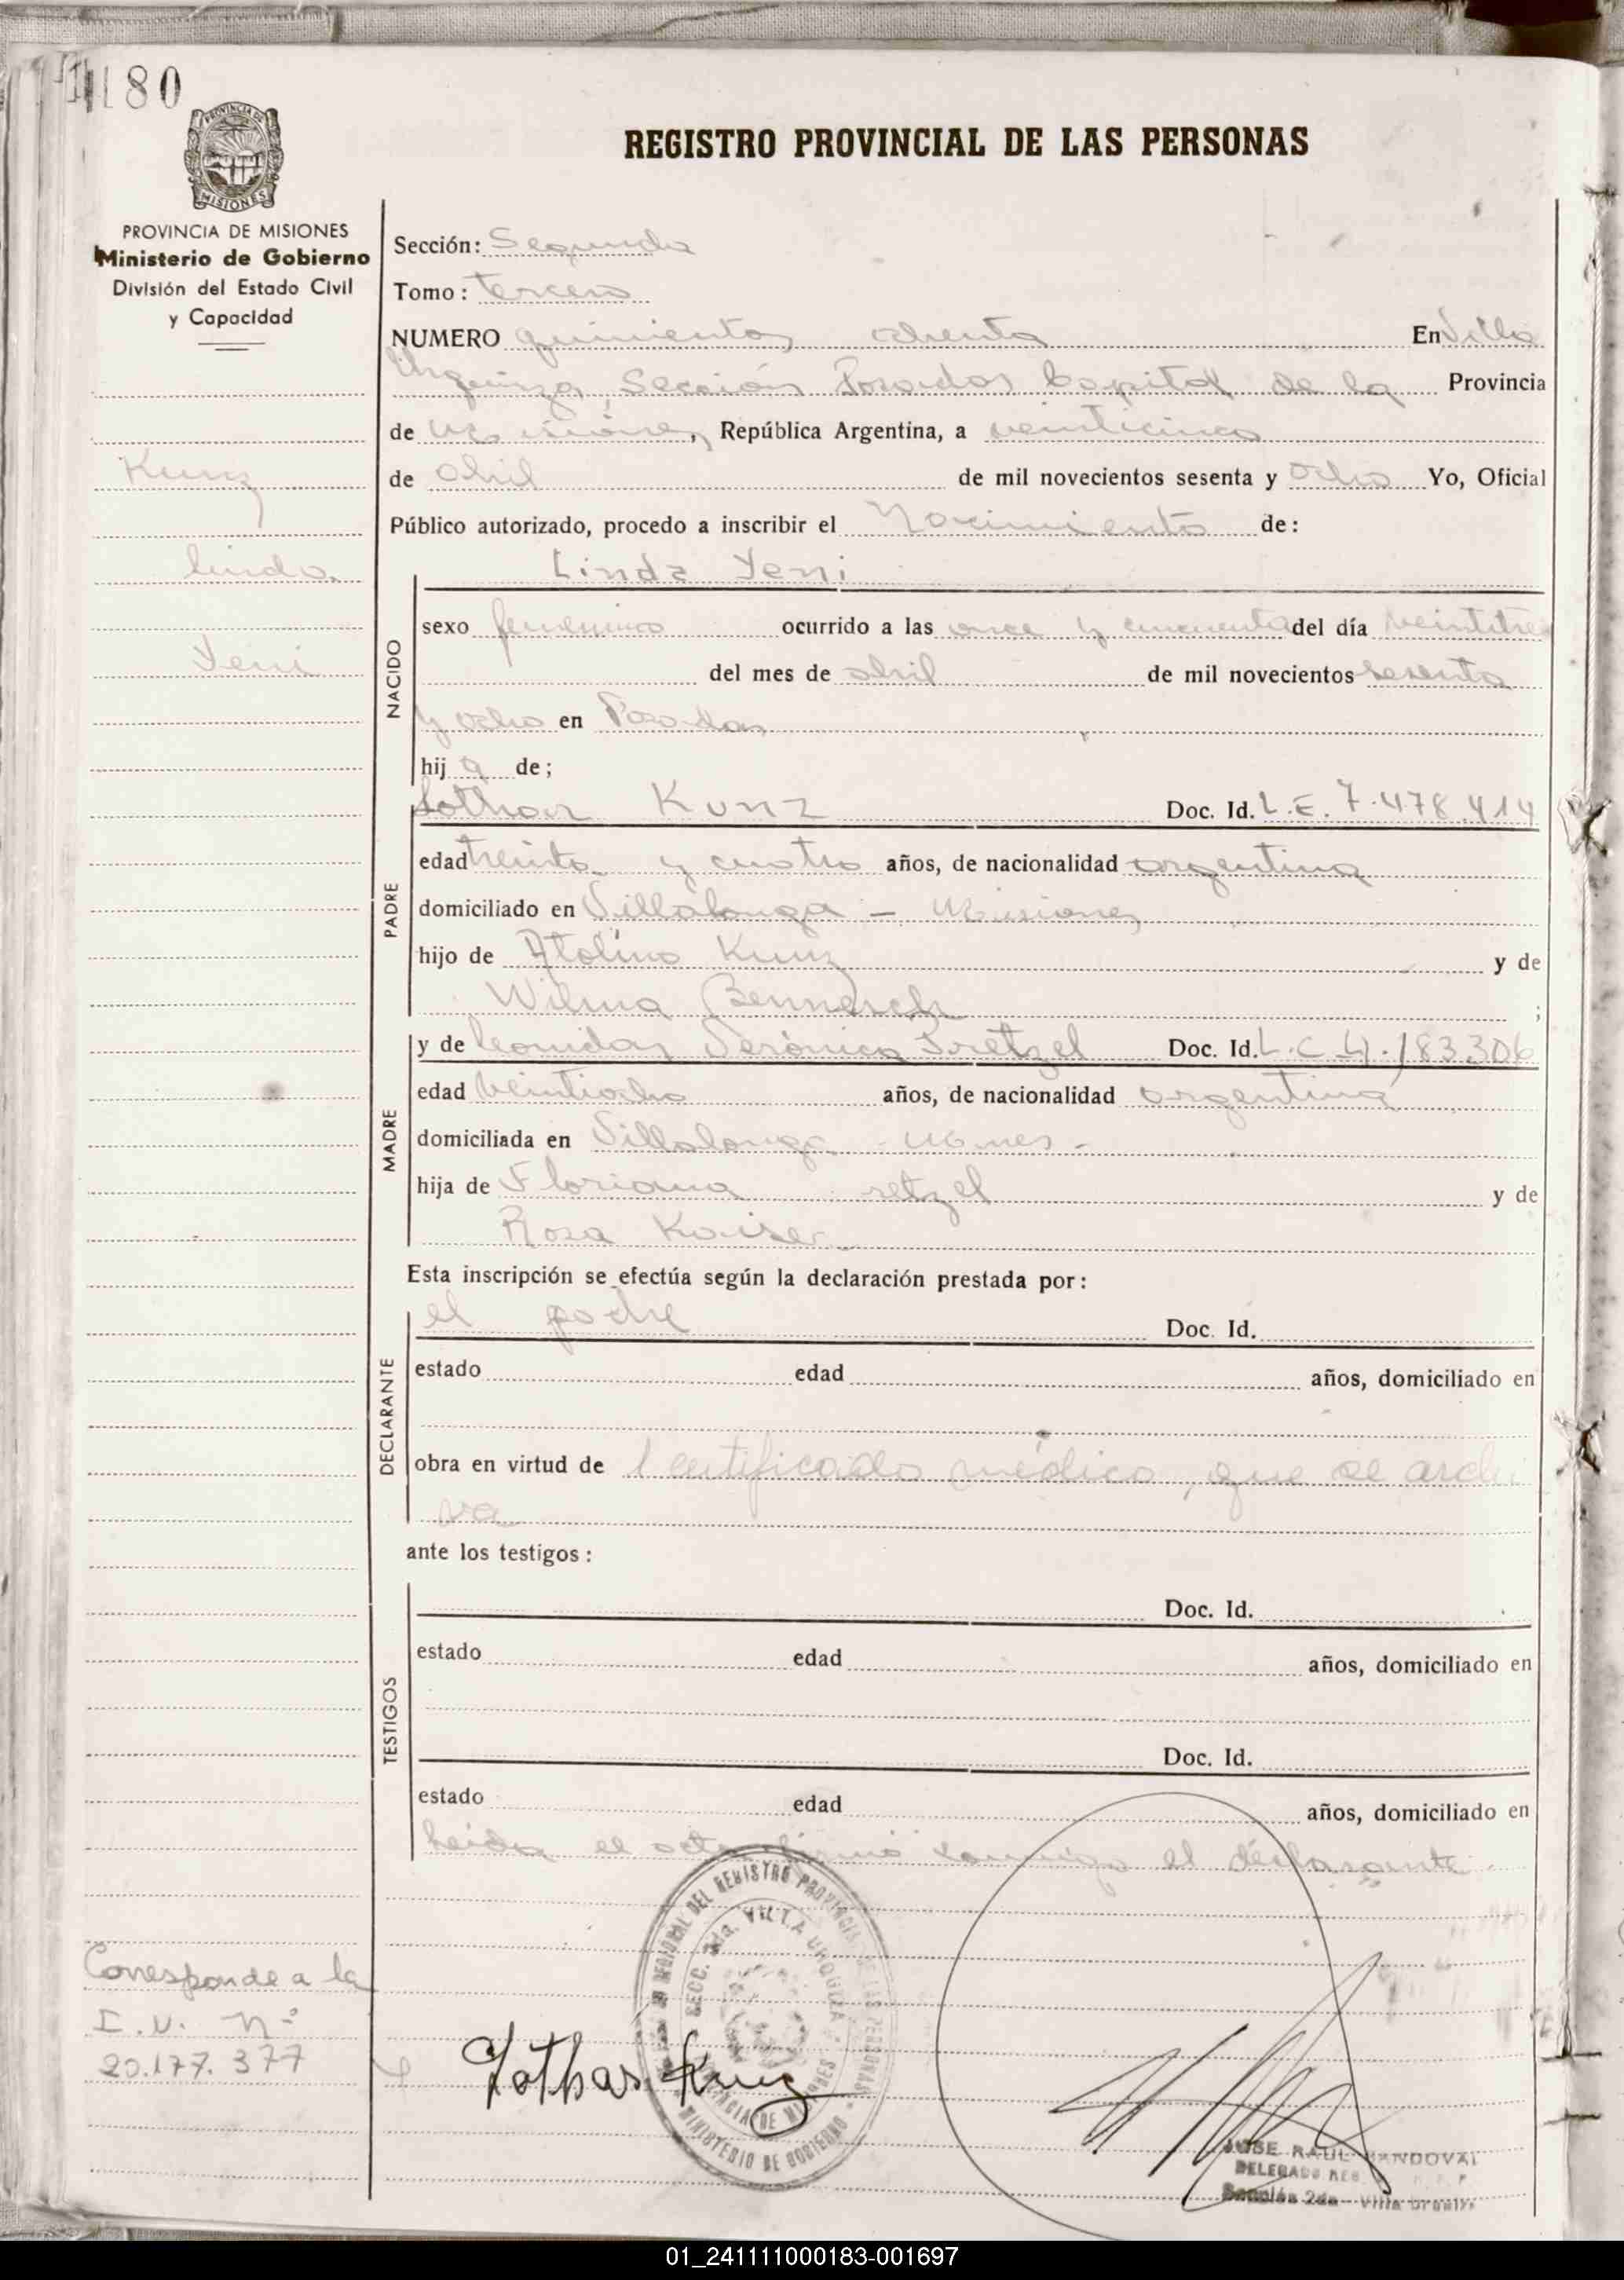 180
PROVINCIA DE MISIONES
PROVINCIA DE MISIONES
Ministerio de Gobierno
División del Estado Civil
y Capacidad
Kunz
Linda
Yeni
Corresponde a la
I.U. Nº
20.177.377
REGISTRO PROVINCIAL DE LAS PERSONAS
Sección: Segunda
Tomo: tercero
NUMERO quinientos ochenta En Villa
Urquiza, Sección Posadas Capital de la Provincia
de Misiones, República Argentina, a veinticinco
de abril de mil novecientos sesenta y ocho Yo, Oficial
Público autorizado, procedo a inscribir el Nacimiento de:
NACIDO
Linda Yeni
sexo femenino ocurrido a las once y cincuenta del día veintitres
del mes de abril de mil novecientos sesenta
y ocho en Posadas
hij a de;
PADRE
Lothar Kunz Doc. Id. L.E. 7.478.414
edad treinta y cuatro años, de nacionalidad argentina
domiciliado en Villalonga - Misiones
hijo de Atolino Kunz y de
Wilma Bennesch ;
MADRE
y de Leonidas Verónica Pretzel Doc. Id. L.C. 4.183306
edad veintiocho años, de nacionalidad argentina
domiciliada en Villalonga - Mnes -
hija de Floriana retzel y de
Rosa Kaiser
Esta inscripción se efectúa según la declaración prestada por:
DECLARANTE
el padre Doc. Id.
estado edad años, domiciliado en
obra en virtud de certificado médico, que se archi
va
ante los testigos:
TESTIGOS
Doc. Id.
estado edad años, domiciliado en
Doc. Id.
estado edad años, domiciliado en
Leída el acta firmó conmigo el declarante.
DEL REGISTRO PROVINCIAL DE LAS PERSONAS
SECC. 2da. VILLA URQUIZA
PROVINCIA DE MISIONES
MINISTERIO DE GOBIERNO
Lothar Kunz
JOSE RAUL SANDOVAL
DELEGADO REG. R. P. P.
Sección 2da - Villa Urquiza
01_241111000183-001697